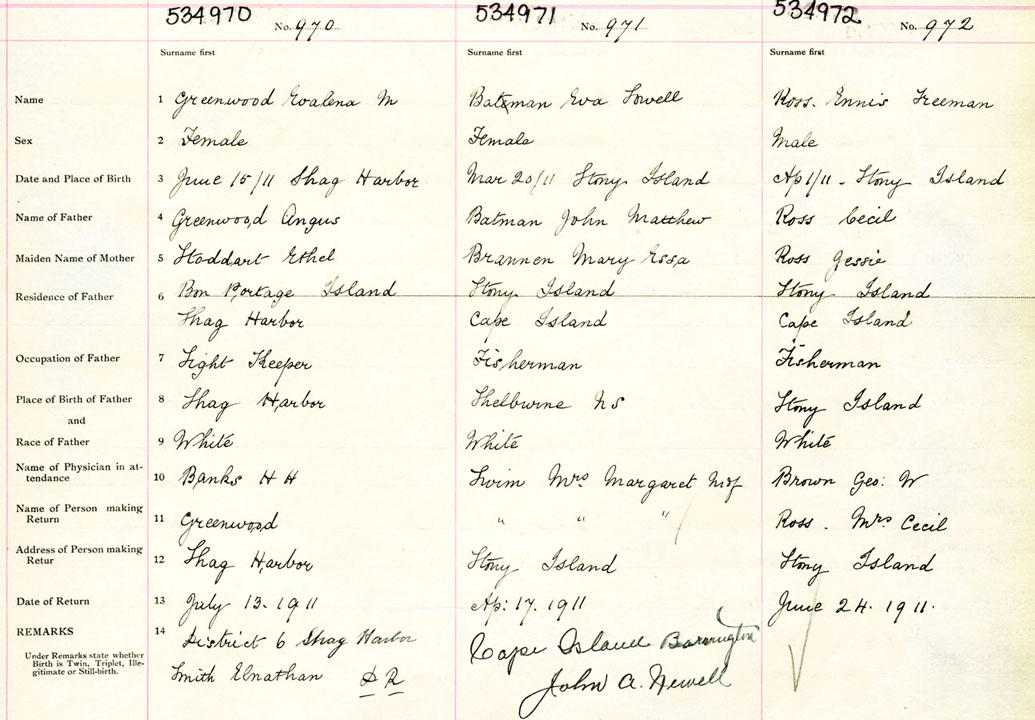 534970 No. 970 534971 No. 971 534972 No. 972
Surname first Surname first Surname first
Name 1 Greenwood Evalena M Bateman Eva Sowell Ross. Ennis Freeman
Sex 2 Female Female Male
Date and Place of Birth 3 June 15/11 Shag Harbor Mar 20/11 Stony Island Ap 1/11 - Stony Island
Name of Father 4 Greenwood Angus Batman John Matthew Ross Cecil
Maiden Name of Mother 5 Stoddart Ethel Brannen Mary Essa Ross Gessie
Residence of Father 6 Bon Portage Island Stony Island Stony Island
Shag Harbor Cape Island Cape Island
Occupation of Father 7 Light Keeper Fisherman Fisherman
Place of Birth of Father 8 Shag Harbor Shelburne NS Stony Island
and
Race of Father 9 White White White
Name of Physician in at-
tendance 10 Banks H H Swim Mrs Margaret Brown Geo: W
Name of Person making
Return 11 Greenwood " " " Ross. Mrs Cecil
Address of Person making
Retur 12 Shag Harbor Stony Island Stony Island
Date of Return 13 July 13. 1911 Ap: 17. 1911 June 24. 1911.
REMARKS 14 District 6 Shag Harbor Cape Island Barrington
Under Remarks state whether
Birth is Twin, Triplet, Ille-
gitimate or Still-birth.
Smith Elnathan D R John A. Newell